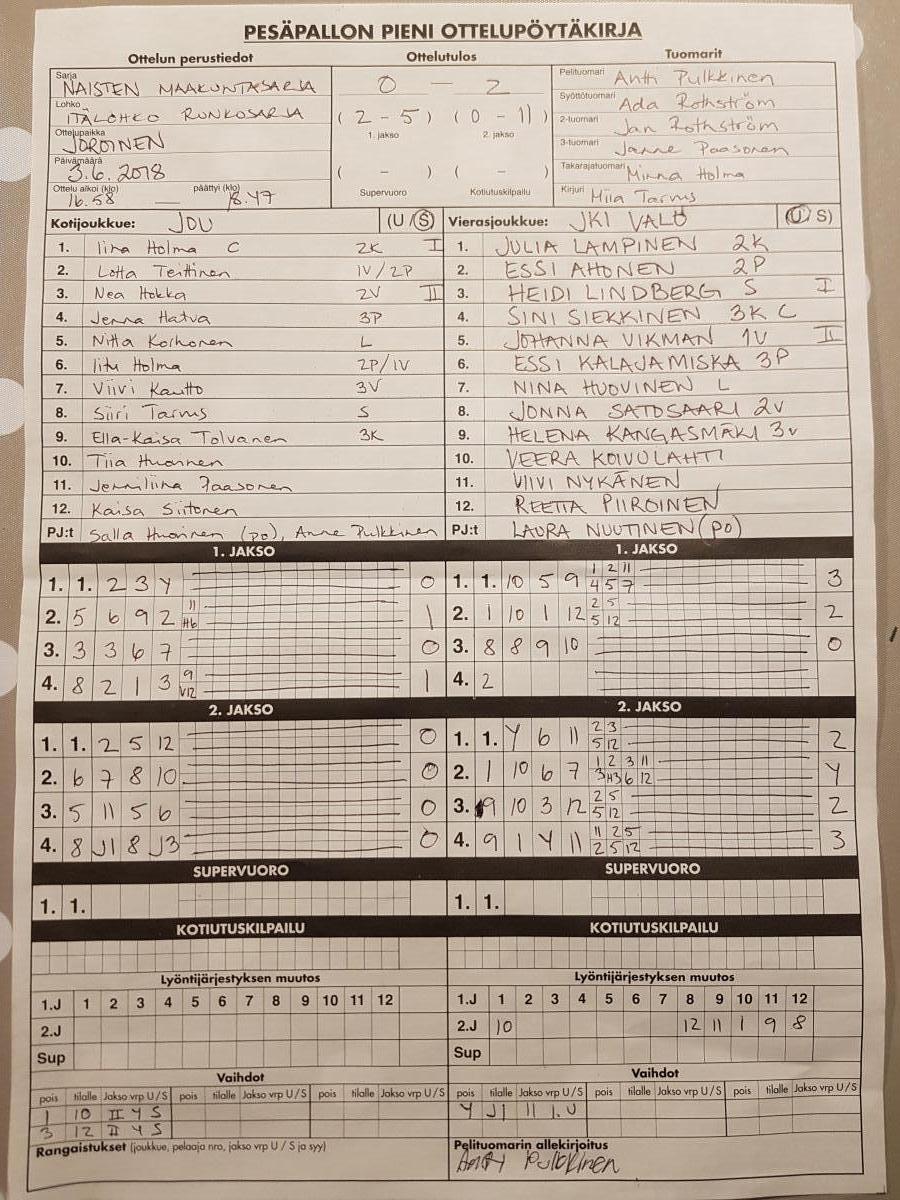 PESÄPALLON PIENI OTTELUPÖYTÄKIRJA
Ottelun perustiedot Ottelutulos Tuomarit
Sarja NAISTEN MAAKUNTASARJA
Lohko ITÄLOHKO RUNKOSARJA
Ottelupaikka JOROINEN
Päivämäärä 3.6.2018
Ottelu alkoi (klo) päättyi (klo)
16.58 — 18.47
0 — 2
(2 - 5) (0 - 11)
1. jakso 2. jakso
( - ) ( - )
Supervuoro Kotiutuskilpailu
Pelituomari Antti Pulkkinen
Syöttötuomari Ada Rothström
2-tuomari Jan Rothström
3-tuomari Janne Paasonen
Takarajatuomari Minna Holma
Kirjuri Miia Tarvus
Kotijoukkue: JOU (U/S)
1. Iina Holma C 2K I
2. Lotta Teittinen 1V/2P
3. Nea Hokka 2V II
4. Jenna Hatva 3P
5. Niita Korhonen L
6. Iitu Holma 2P/1V
7. Viivi Kautto 3V
8. Siiri Tarvus S
9. Ella-Kaisa Tolvanen 3K
10. Tiia Huovinen
11. Jenniliina Paasonen
12. Kaisa Siitonen
PJ:t Salla Huovinen (po), Anne Pulkkinen
Vierasjoukkue: JKI VALO (U/S)
1. JULIA LAMPINEN 2K
2. ESSI AHONEN 2P
3. HEIDI LINDBERG S I
4. SINI SIEKKINEN 3K C
5. JOHANNA VIKMAN 1V II
6. ESSI KALAJAMISKA 3P
7. NINA HUOVINEN L
8. JONNA SATOSAARI 2V
9. HELENA KANGASMÄKI 3V
10. VEERA KOIVULAHTI
11. VIIVI NYKÄNEN
12. REETTA PIIROINEN
PJ:t LAURA NUUTINEN (PO)
1. JAKSO
1. 1. 2 3 4 0
2. 5 6 9 2 11 H6 1
3. 3 3 6 7 0
4. 8 2 1 3 9 V12 1
1. JAKSO
1. 1. 10 5 9 1 2 11 4 5 7 3
2. 1 10 1 12 2 5 5 12 2
3. 8 8 9 10 0
4. 2
2. JAKSO
1. 1. 2 5 12 0
2. 6 7 8 10 0
3. 5 11 5 6 0
4. 8 J1 8 J3 0
2. JAKSO
1. 1. 4 6 11 2 3 5 12 2
2. 1 10 6 7 1 2 3 11 3 H3 6 12 4
3. 9 10 3 12 2 5 5 12 2
4. 9 1 4 11 11 2 5 2 5 12 3
SUPERVUORO
1. 1.
SUPERVUORO
1. 1.
KOTIUTUSKILPAILU
KOTIUTUSKILPAILU
Lyöntijärjestyksen muutos
1.J 1 2 3 4 5 6 7 8 9 10 11 12
2.J
Sup
Lyöntijärjestyksen muutos
1.J 1 2 3 4 5 6 7 8 9 10 11 12
2.J 10 12 11 1 9 8
Sup
Vaihdot
pois tilalle Jakso vrp U/S pois tilalle Jakso vrp U/S pois tilalle Jakso vrp U/S
1 10 II 4 S
3 12 II 4 S
Vaihdot
pois tilalle Jakso vrp U/S pois tilalle Jakso vrp U/S pois tilalle Jakso vrp U/S
4 J1 II 1. U
Rangaistukset (joukkue, pelaaja nro, jakso vrp U / S ja syy)
Pelituomarin allekirjoitus
Antti Pulkkinen